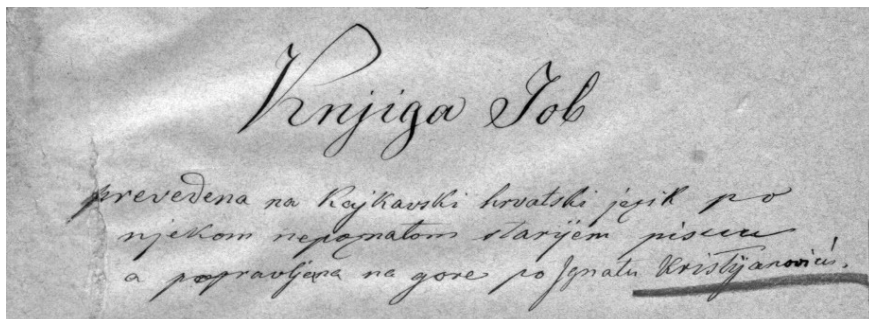 Knjiga Job
prevedena na kajkavski hrvatski jezik po
njekom nepoznatom starijem piscu
a popravljena na gore po Ignatu Kristijanoviću.